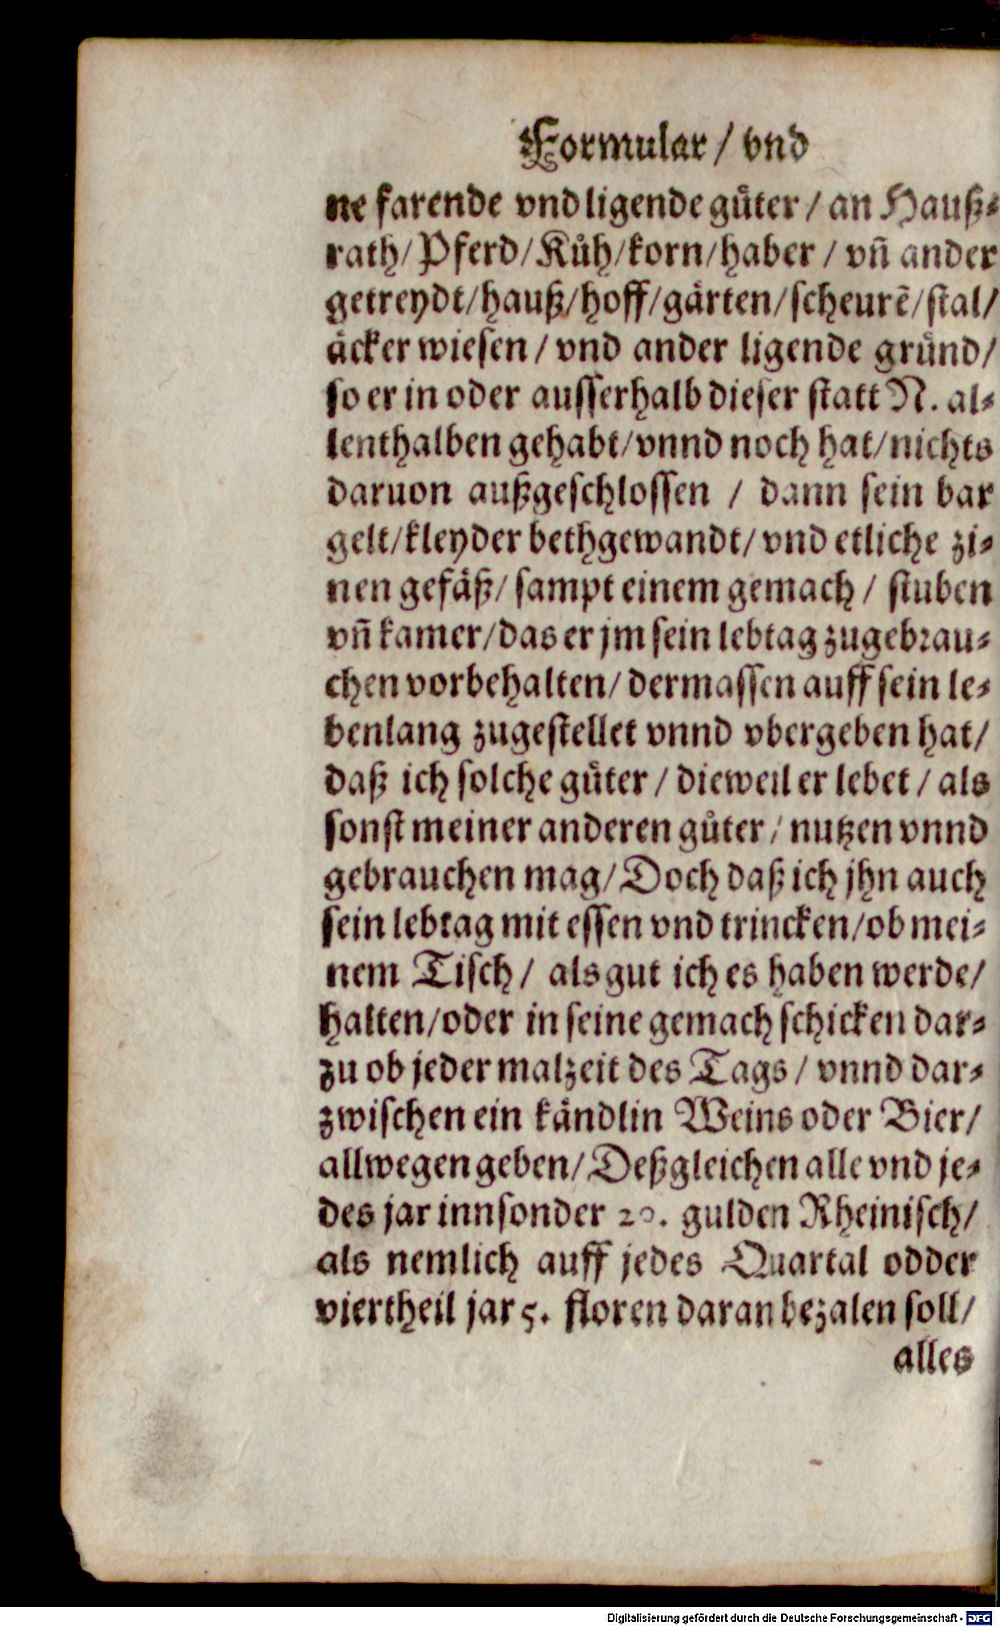 Formular / vnd
ne farende vnd ligende guͤter / an Hauß⸗
rath / Pferd / Kuͤh / korn / haber / vñ ander
getreydt / hauß / hoff / gaͤrten / scheurẽ / stal /
aͤcker wiesen / vnd ander ligende gruͤnd /
so er in oder ausserhalb dieser statt N. al⸗
lenthalben gehabt / vnnd noch hat / nichts
daruon außgeschlossen / dann sein bar
gelt / kleyder bethgewandt / vnd etliche zi⸗
nen gefaͤß / sampt einem gemach / stuben
vñ kamer / das er jm sein lebtag zugebrau⸗
chen vorbehalten / dermassen auff sein le⸗
benlang zugestellet vnnd vbergeben hat /
daß ich solche guͤter / dieweil er lebet / als
sonst meiner anderen guͤter / nutzen vnnd
gebrauchen mag / Doch daß ich jhn auch
sein lebtag mit essen vnd trincken / ob mei⸗
nem Tisch / als gut ich es haben werde /
halten / oder in seine gemach schicken dar⸗
zu ob jeder malzeit des Tags / vnnd dar⸗
zwischen ein kaͤndlin Weins oder Bier /
allwegen geben / Deßgleichen alle vnd je⸗
des jar innsonder 20. gulden Rheinisch /
als nemlich auff jedes Quartal odder
viertheil jar 5. floren daran bezalen soll /
alles
Digitalisierung gefördert durch die Deutsche Forschungsgemeinschaft - DFG